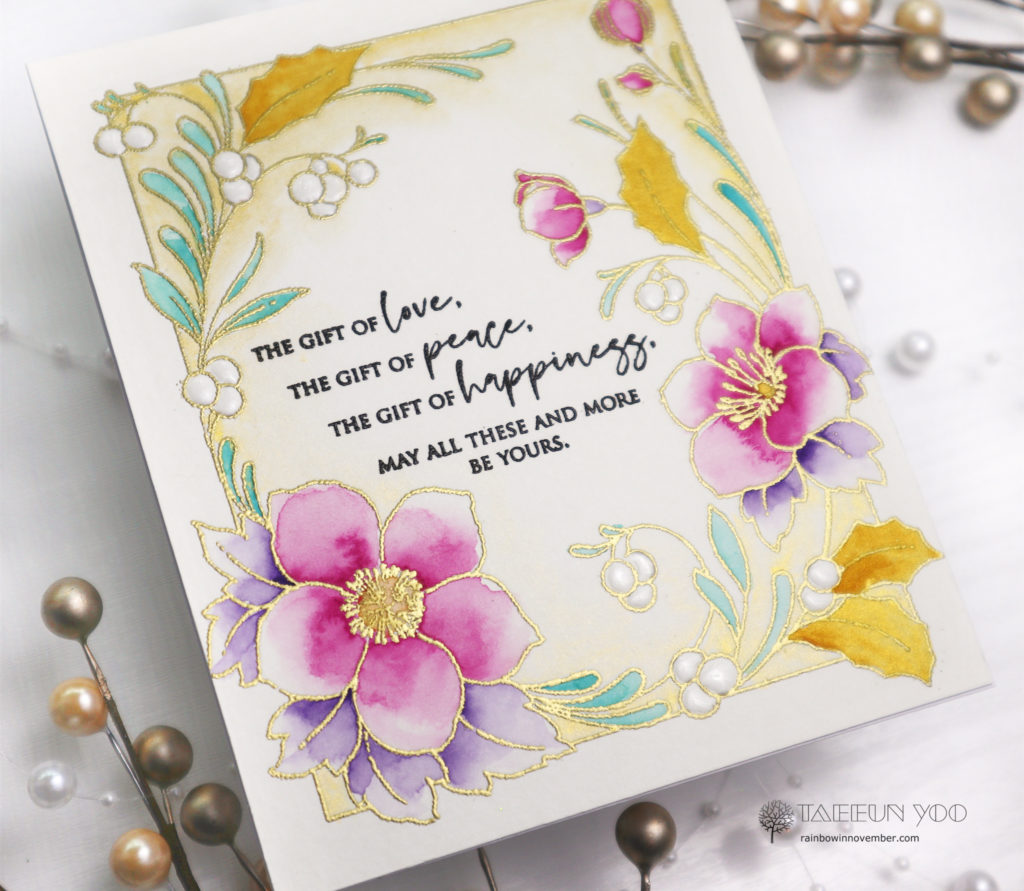 THE GIFT OF love,
THE GIFT OF peace,
THE GIFT OF happiness.
MAY ALL THESE AND MORE
BE YOURS.
TAEEUN YOO
rainbowinnovember.com